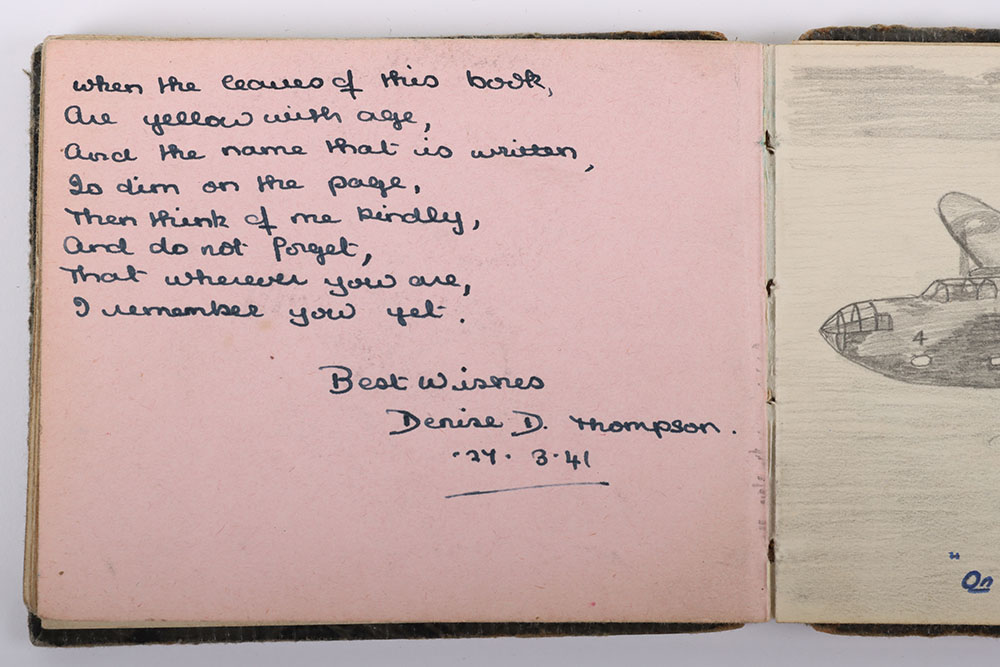 When the leaves of this book,
Are yellow with age,
And the name that is written,
Is dim on the page,
Then think of me kindly,
And do not forget,
That wherever you are,
I remember you yet.
Best Wishes
Denise D. Thompson.
.27. 3.41
4
"
On